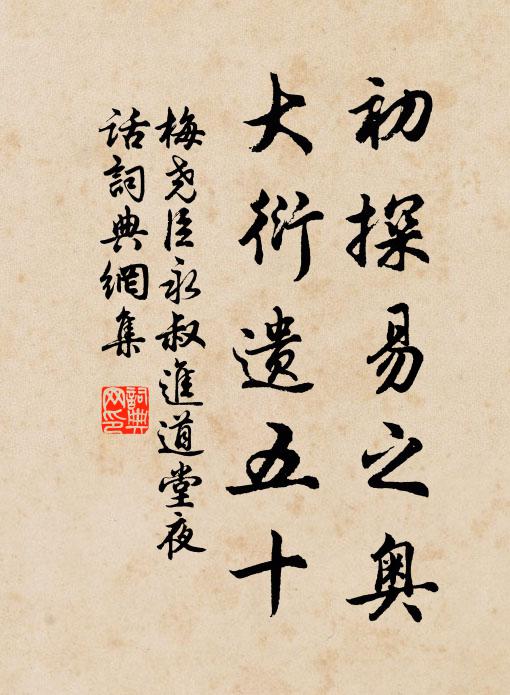 初探易之奥
大衍遗五十
梅尧臣永叔進道堂夜
话詞典網集
詞典
网印